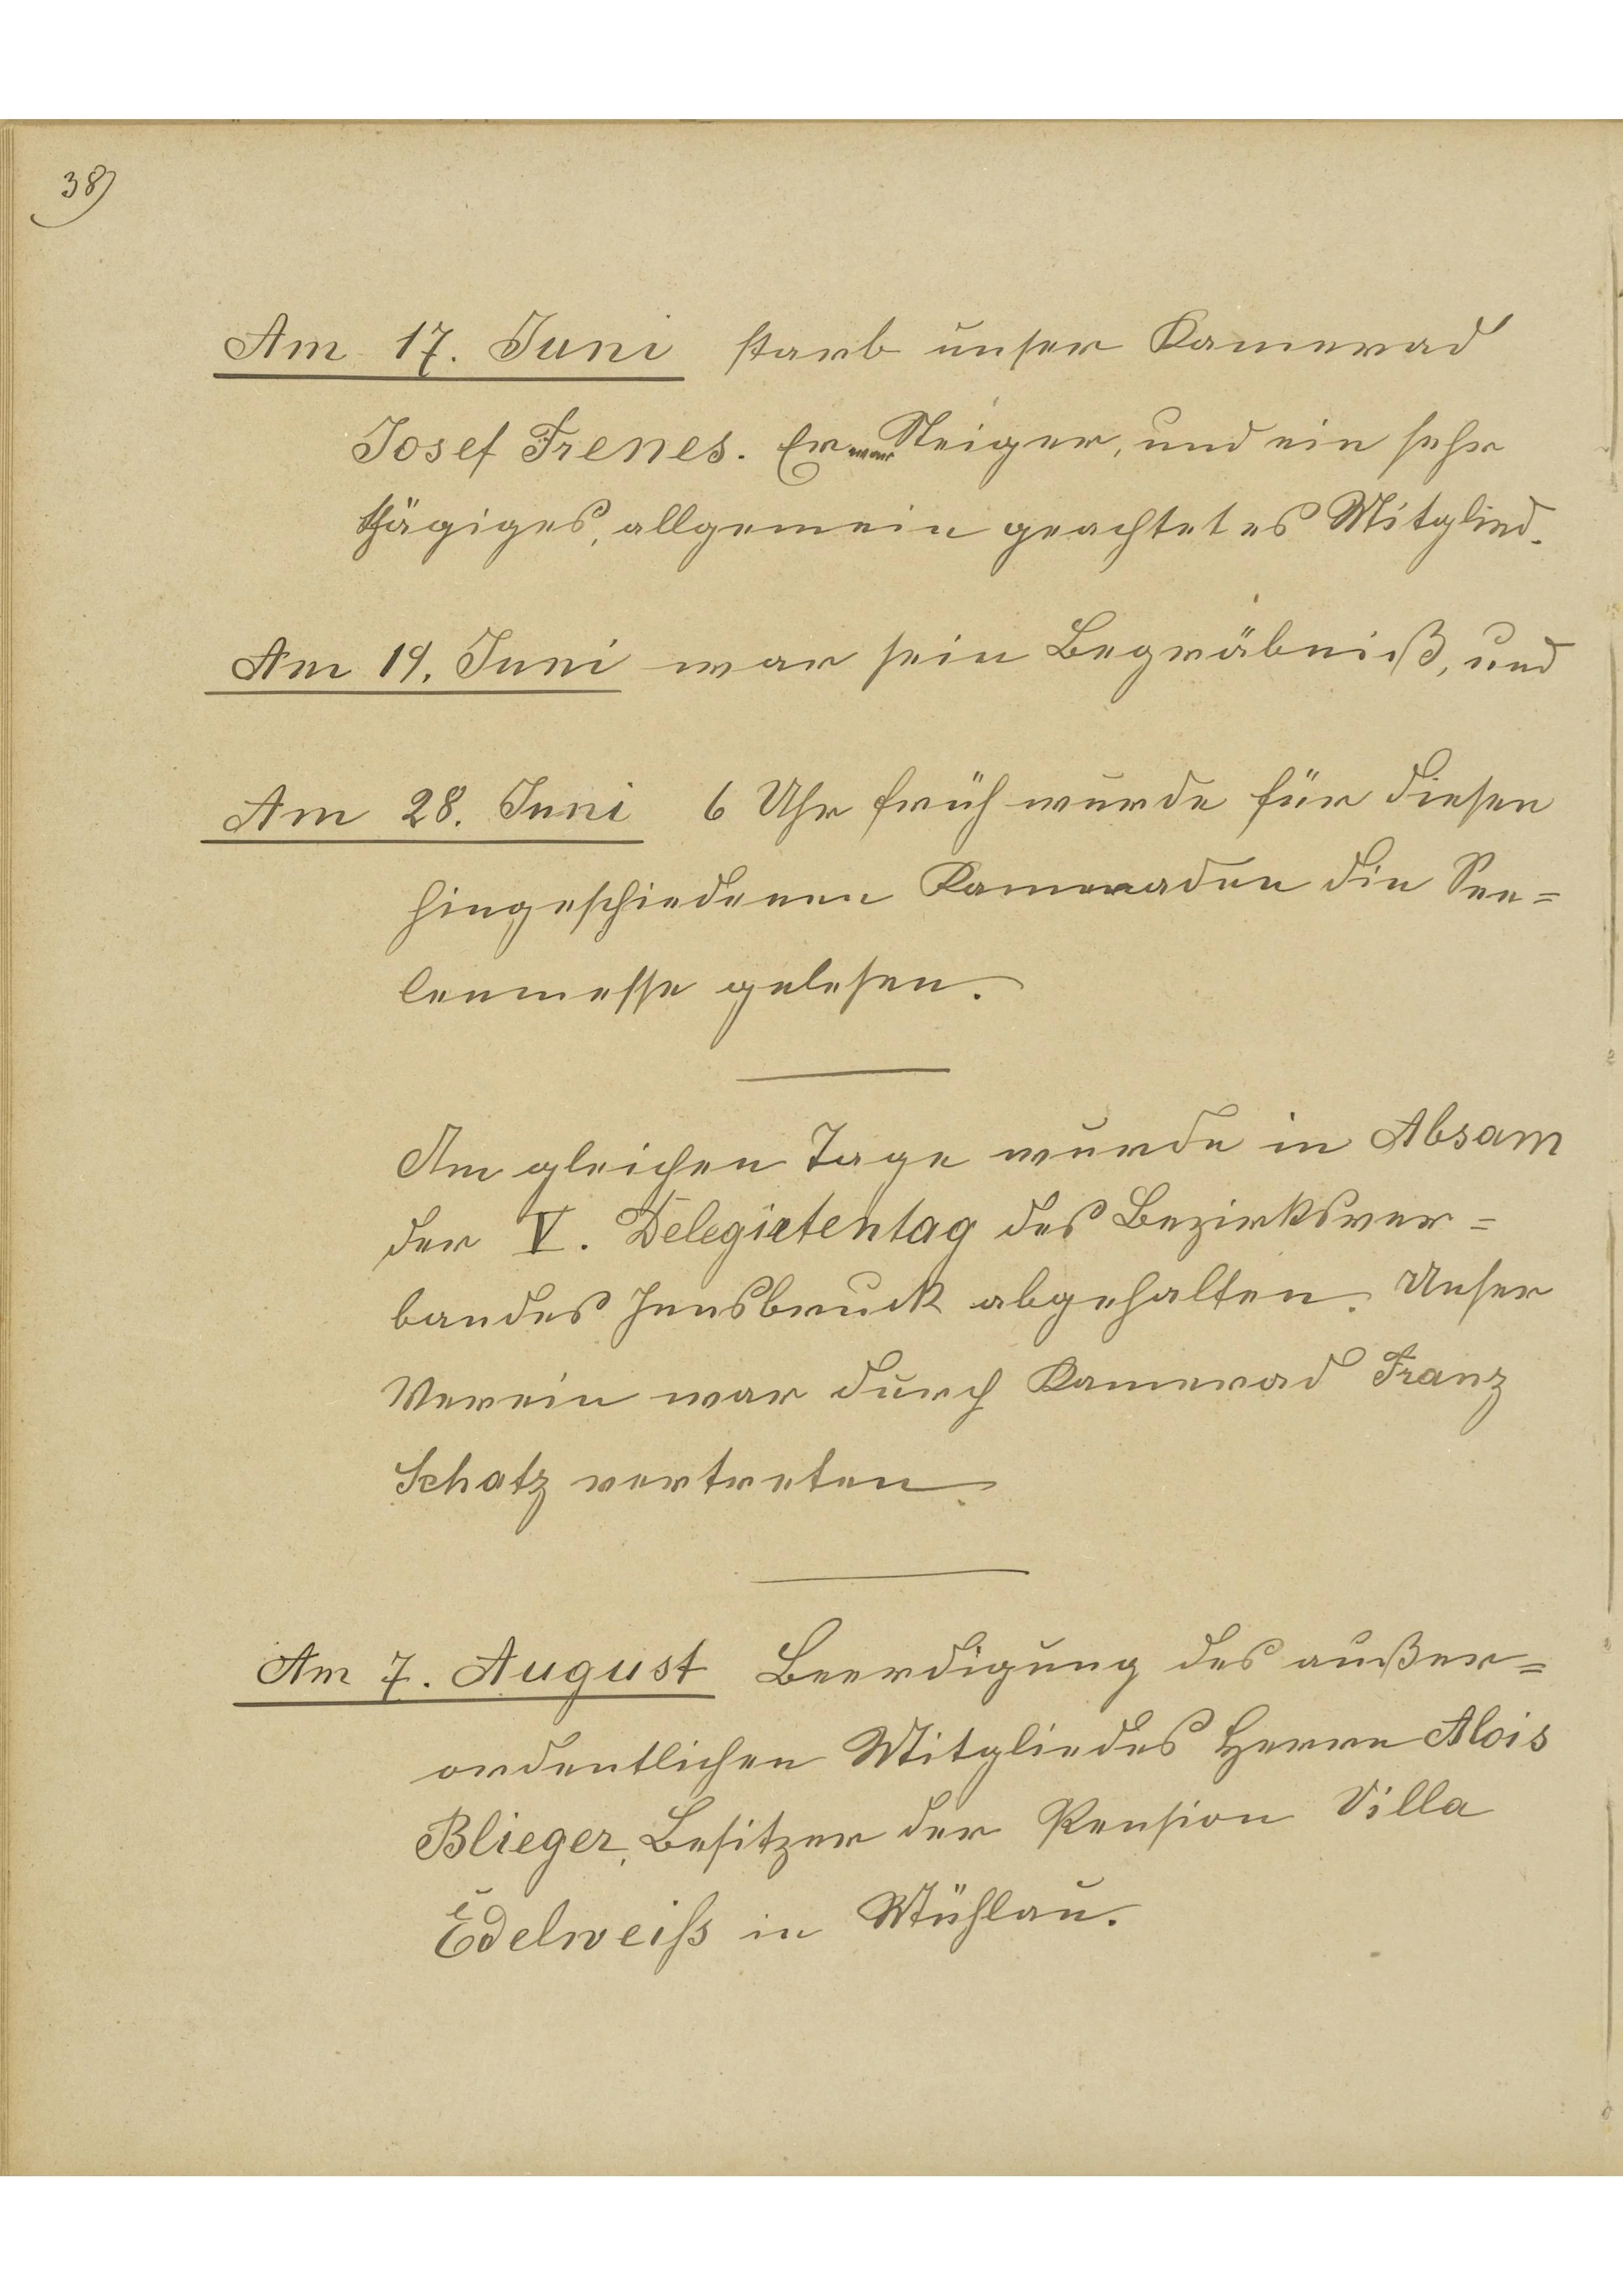 38)
Am 17. Juni starb unser Kamerad
Josef Frenes. Er war Steiger, und ein sehr
allgemein geachtetes Mitglied.
Am 19. Juni war sein Begräbniß, und
Am 28. Juni 6 Uhr früh wurde für diesen
hingeschiedenen Kameraden die See=
lenmesse gelesen.
Am gleichen Tage wurde in Absam
der V. Delegirtentag des Bezirksver=
bandes Innsbruck abgehalten. Unser
Verein war durch Kamerad Franz
Schatz vertreten.
Am 7. August Beerdigung des außer=
ordentlichen Mitgliedes Herrn Alois
Blieger, Besitzer der Pension Villa
Edelweiss in Mühlau.